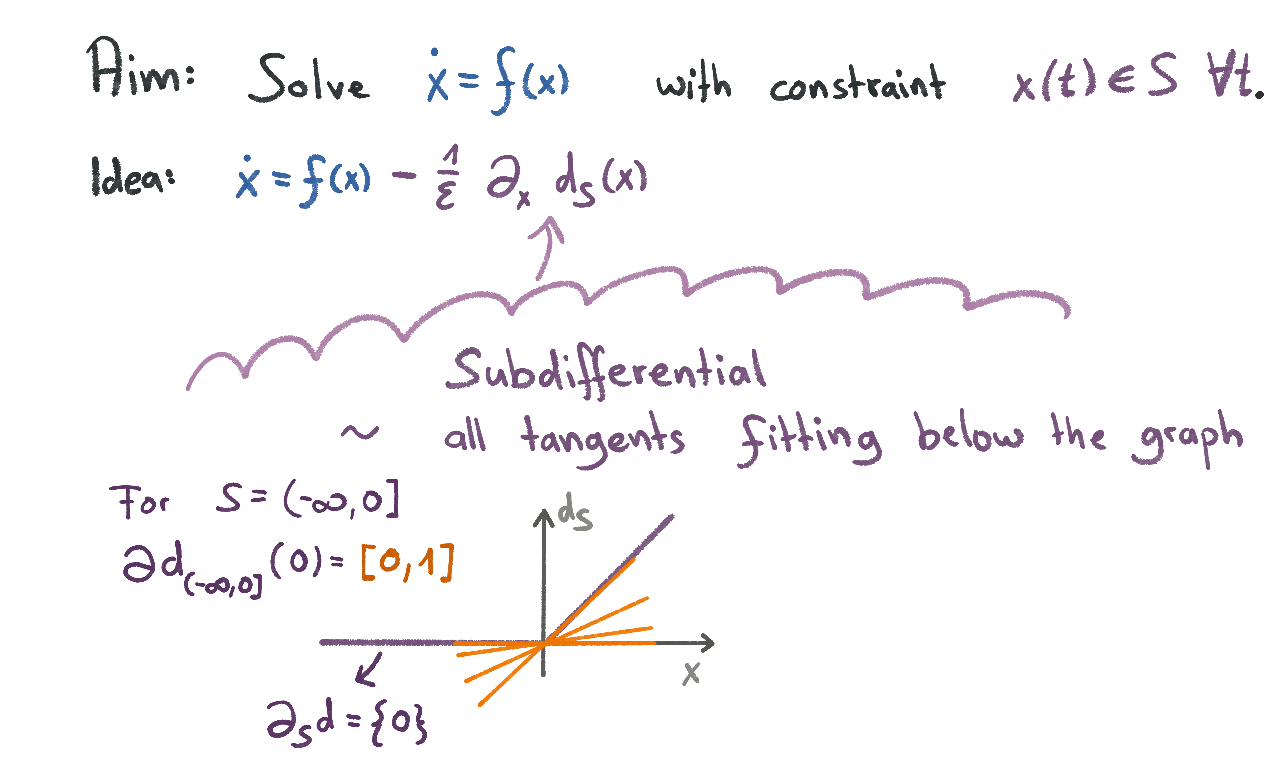 Aim: Solve ẋ = f(x) with constraint x(t) ∈ S ∀t.
Idea: ẋ = f(x) - 1/ε ∂ₓ d_S(x)
Subdifferential
~ all tangents fitting below the graph
For S = (-∞, 0]
d_S
∂d_(-∞,0] (0) = [0, 1]
x
∂_S d = {0}